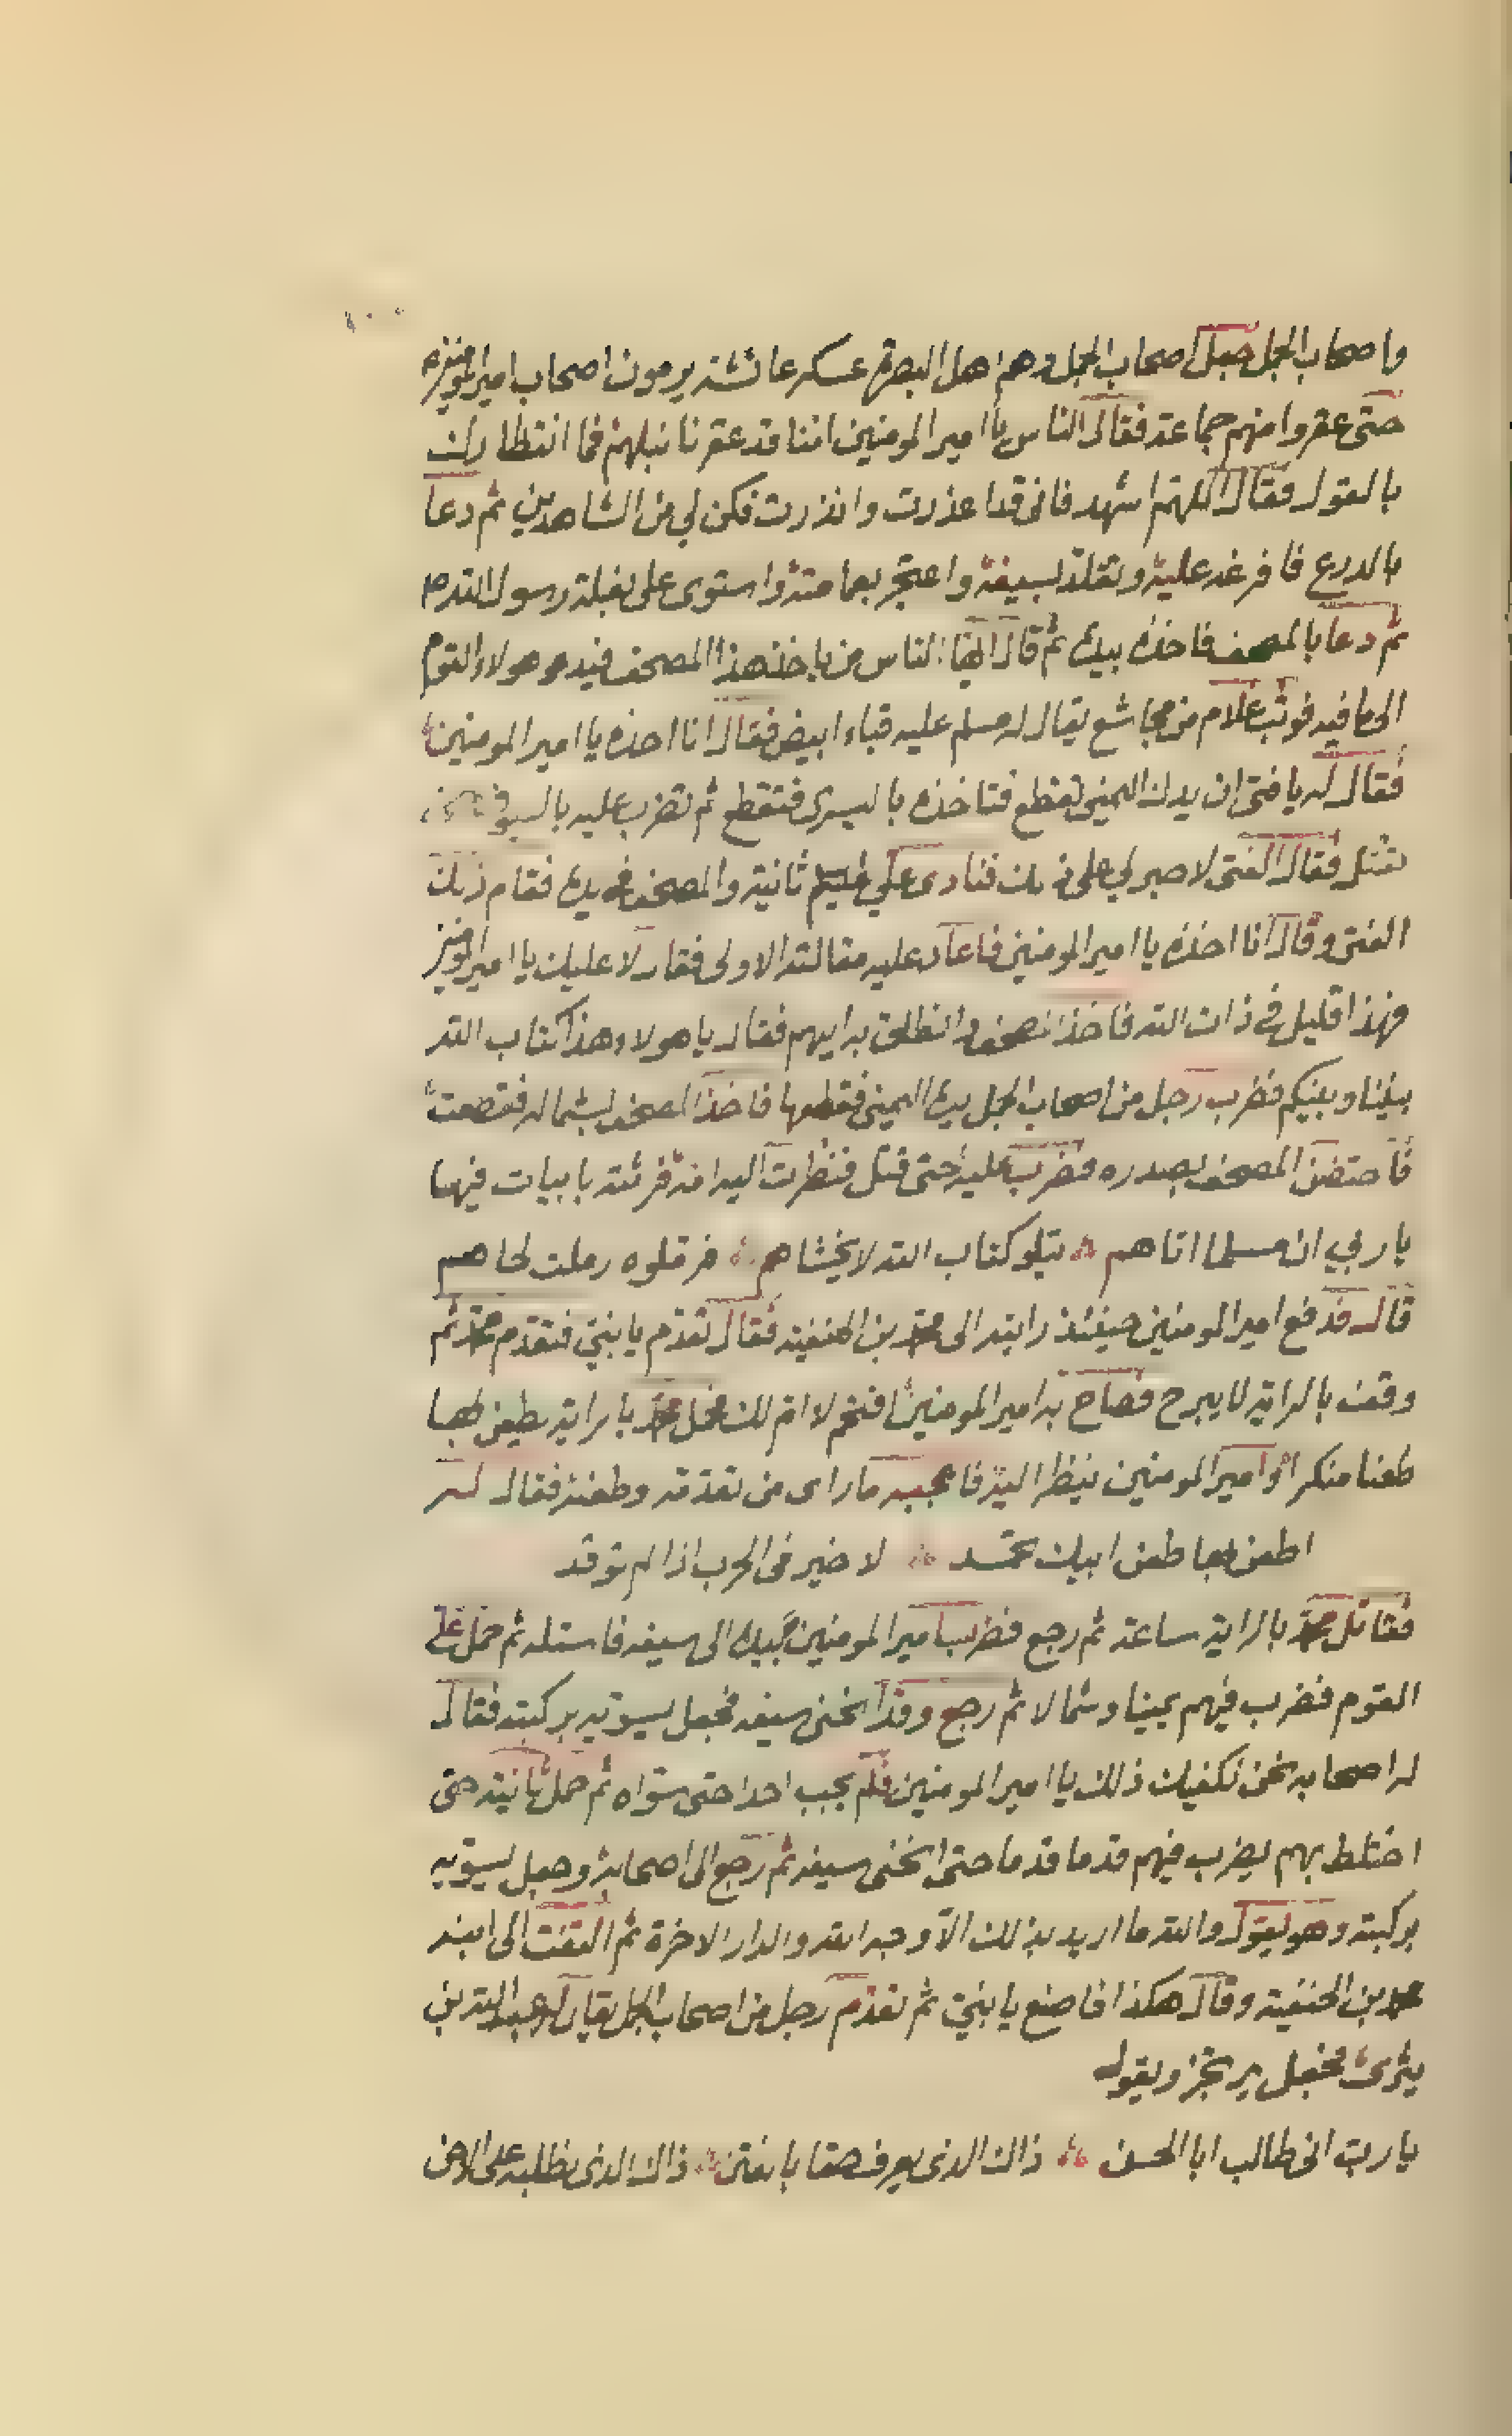 واصحاب الجمل جعل اصحاب الجمل وهم اهل البصرة عسكر عائشة يرمون اصحاب امير المومنين
حتى عقروا منهم جماعة فقال الناس يا امير المومنين اننا قد عقرنا نبلهم فما انتظارك
بالقول فقال اللهم اشهد فاني قد اعذرت وانذرت فكن لي من الشاهدين ثم دعا
بالدرع فافرغه عليه وتقلد بسيفه واعتجر بعمامته واستوى على بغلة رسول الله ص
ثم دعا بالمصحف فاخذه بيده ثم قال ايها الناس من ياخذ هذا المصحف فيدعو هولاء القوم
الى ما فيه فوثب غلام من مجاشع يقال له مسلم عليه قباء ابيض فقال انا اخذه يا امير المومنين
فقال له يا فتى ان يدك اليمنى تقطع فتاخذه باليسرى فتقطع ثم تضرب عليه بالسيوف حتى
تقتل فقال الفتى لا صبر لي على ذلك فنادى علي ثانية والمصحف في يده فقام ذلك
الفتى وقال انا اخذه يا امير المومنين فاعاد عليه مقالته الاولى فقال لا عليك يا امير المومنين
فهذا قليل في ذات الله فاخذ المصحف وانطلق به اليهم فقال يا هولاء هذا كتاب الله
بيننا وبينكم فضرب رجل من اصحاب الجمل يده اليمنى فقطعها فاخذ المصحف بشماله فقطعت
فاحتضن المصحف بصدره فضرب عليه حتى قتل فنظرت اليه امه فرثته بابيات فيها
يا ربي ان مسلما اتاهم ؞ يتلو كتاب الله لا يخشاهم ؞ فرملوه رملت لحاهم
قال فدفع امير المومنين حينئذ رايته الى محمد بن الحنفية فقال تقدم يا بني فتقدم محمد ثم
وقف بالراية لا يبرح فصاح به امير المومنين اقتحم لا ام لك فحمل محمد بالراية يطعن بها
طعنا منكرا وامير المومنين ينظر اليه فاعجبه ما راى من تقدمه وطعنه فقال له
اطعن بها طعن ابيك تحمد ؞ لا خير في الحرب اذا لم توقد
فقاتل محمد بالراية ساعة ثم رجع فضرب امير المومنين بيده الى سيفه فاستله ثم حمل على
القوم فضرب فيهم يمينا وشمالا ثم رجع وقد انحنى سيفه فجعل يسويه بركبته فقال
له اصحابه نحن نكفيك ذلك يا امير المومنين فلم يجب احدا حتى سواه ثم حمل ثانية حتى
اختلط بهم يضرب فيهم قدما قدما حتى انحنى سيفه ثم رجع الى اصحابه وجعل يسويه
بركبته وهو يقول والله ما اريد بذلك الا وجه الله والدار الاخرة ثم التفت الى ابنه
محمد بن الحنفية وقال هكذا فاصنع يا بني ثم تقدم رجل من اصحاب الجمل يقال له عبد الله بن
يثرى فجعل يرتجز ويقول
يا رب اني طالب ابا الحسن ؞ ذاك الذي يعرف حقا بالفتن ؞ ذاك الذي نطلبه على الاحن